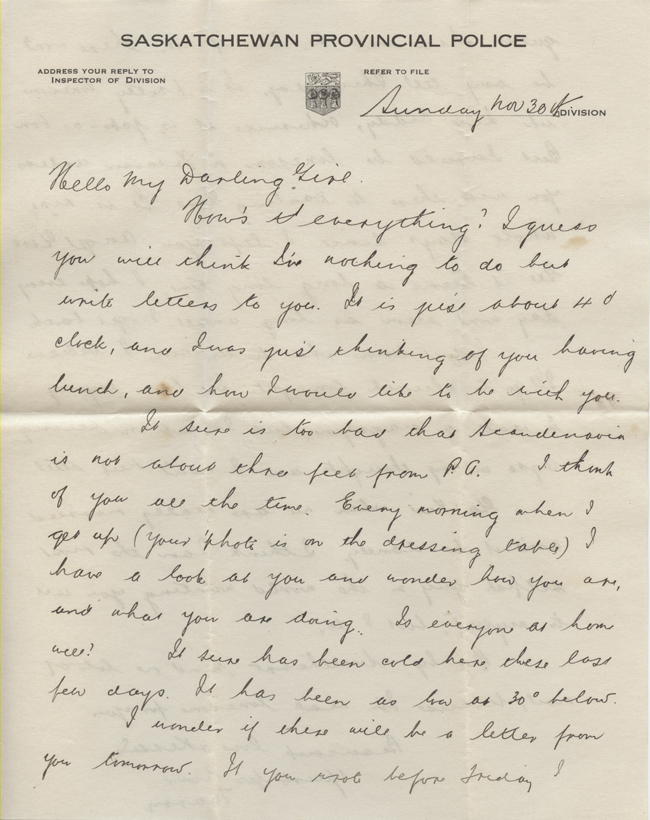 SASKATCHEWAN PROVINCIAL POLICE
ADDRESS YOUR REPLY TO
INSPECTOR OF DIVISION
REFER TO FILE
Sunday Nov 30th DIVISION
Hello My Darling Girl.
How's everything? I guess
you will think I've nothing to do but
write letters to you. It is just about 4 o'
clock, and I was just thinking of you having
lunch, and how I would like to be with you.
It sure is too bad that Scandenavia
is not about three feet from P.A. I think
of you all the time. Every morning when I
get up (your photo is on the dressing table) I
have a look at you and wonder how you are,
and what you are doing. Is everyone at home
well? It sure has been cold here these last
few days. It has been as low as 30° below.
I wonder if there will be a letter from
you tomorrow. If you wrote before Friday I